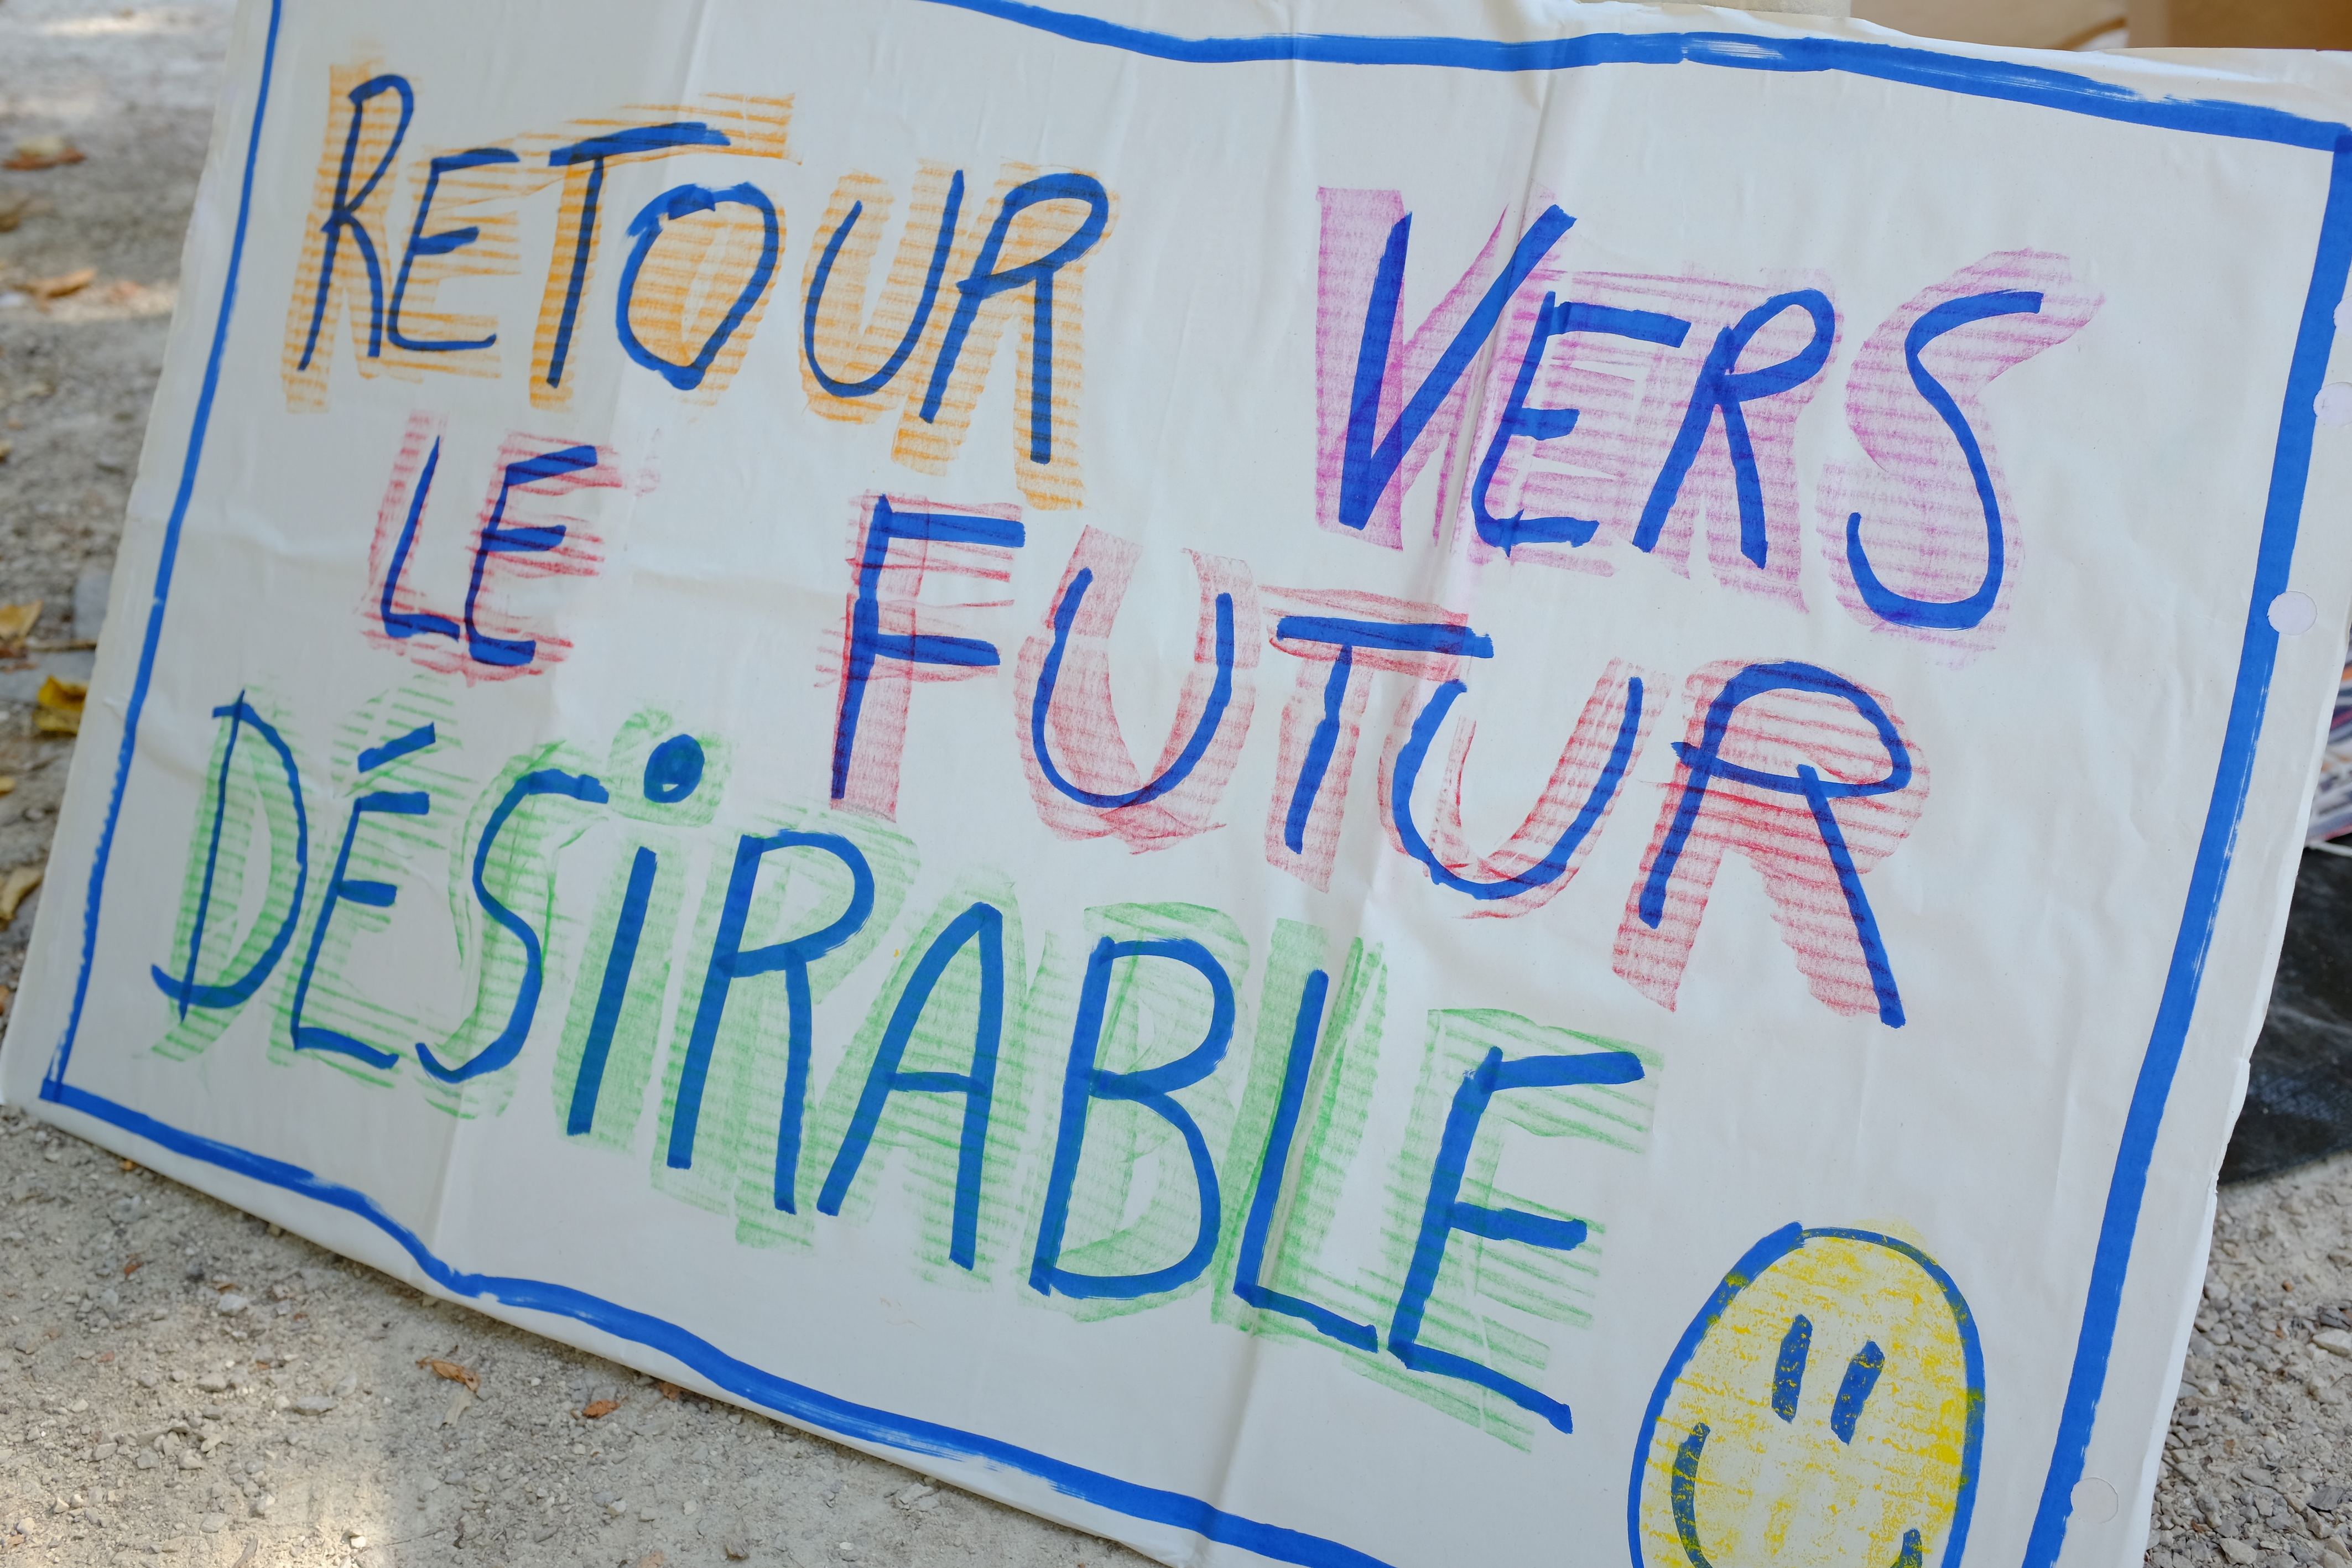 RETOUR VERS
LE FUTUR
DÉSiRABLE